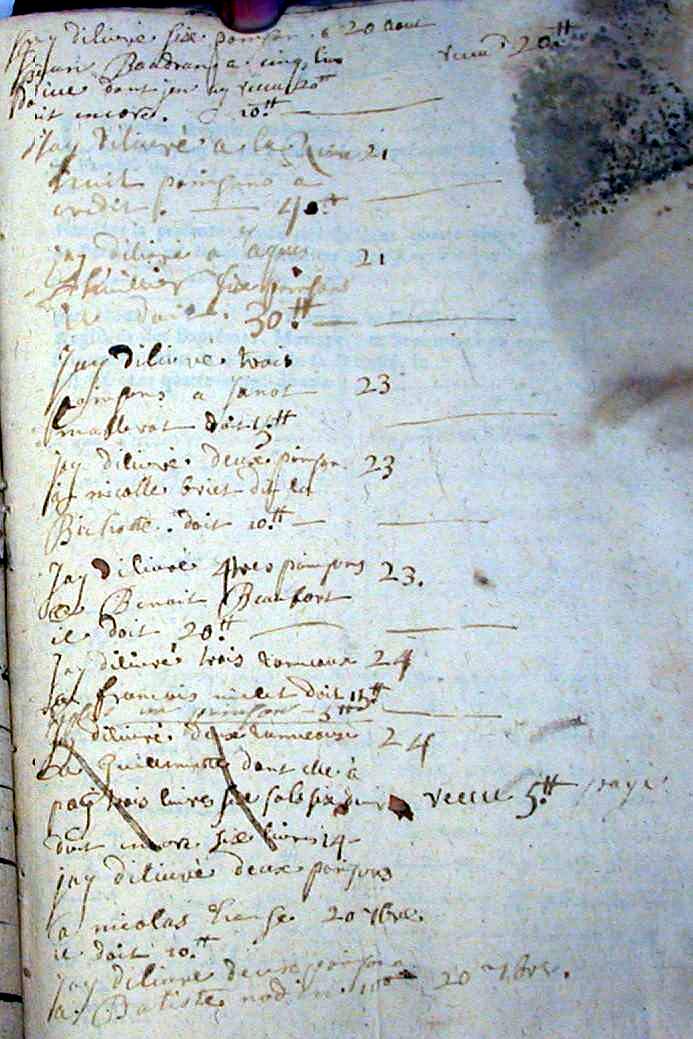 Jay diliuré six poinson a 20 aout
Baudran a cinq liur receu 20tt
piece dont jen ay receu 20tt
doit encore. 10tt
Jay diliuré a la 21
huit poinsons a
credit. 40tt
jay diliuré a agnes 21
six poinsons
doit 30tt
Jay diliuré trois
poinsons a Janot 23
mallerat doit 15tt
jay diliuré deux poinson 23
a nicolle briet dit la
doit 10tt
Jay diliuré 4tre poinsons 23.
a Benoit Beaufort
il doit 20tt
Jay diliuré trois tonneaux 24
a francois milet doit 15tt
un poinson 5tt
Jay diliuré deux tonneaux 24
a Guillemette dont elle a
payé trois liures six sols six denie receu 5tt payé
doit encore six liures 14
jay diliuré deux poinsons
a nicolas 20 7bre.
il doit 10.tt
jay diliuré deux poinson
a Batiste nodin 10tt 20 7bre.